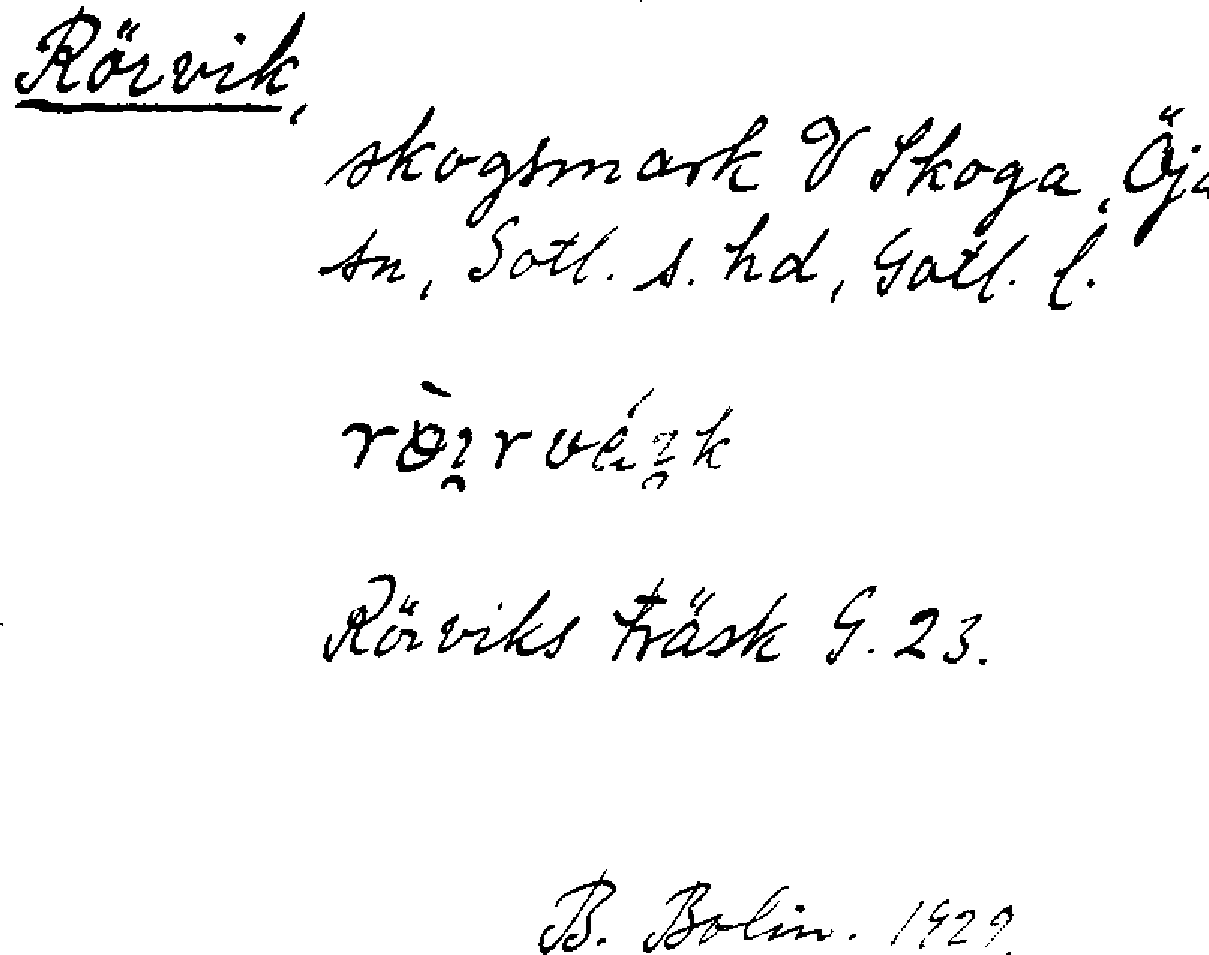 Rörvik,
skogsmark V Skoga, Öja
sn, Gotl. s. hd, Gotl. l.
Rörviks träsk G. 23.
B. Bolin. 1929.